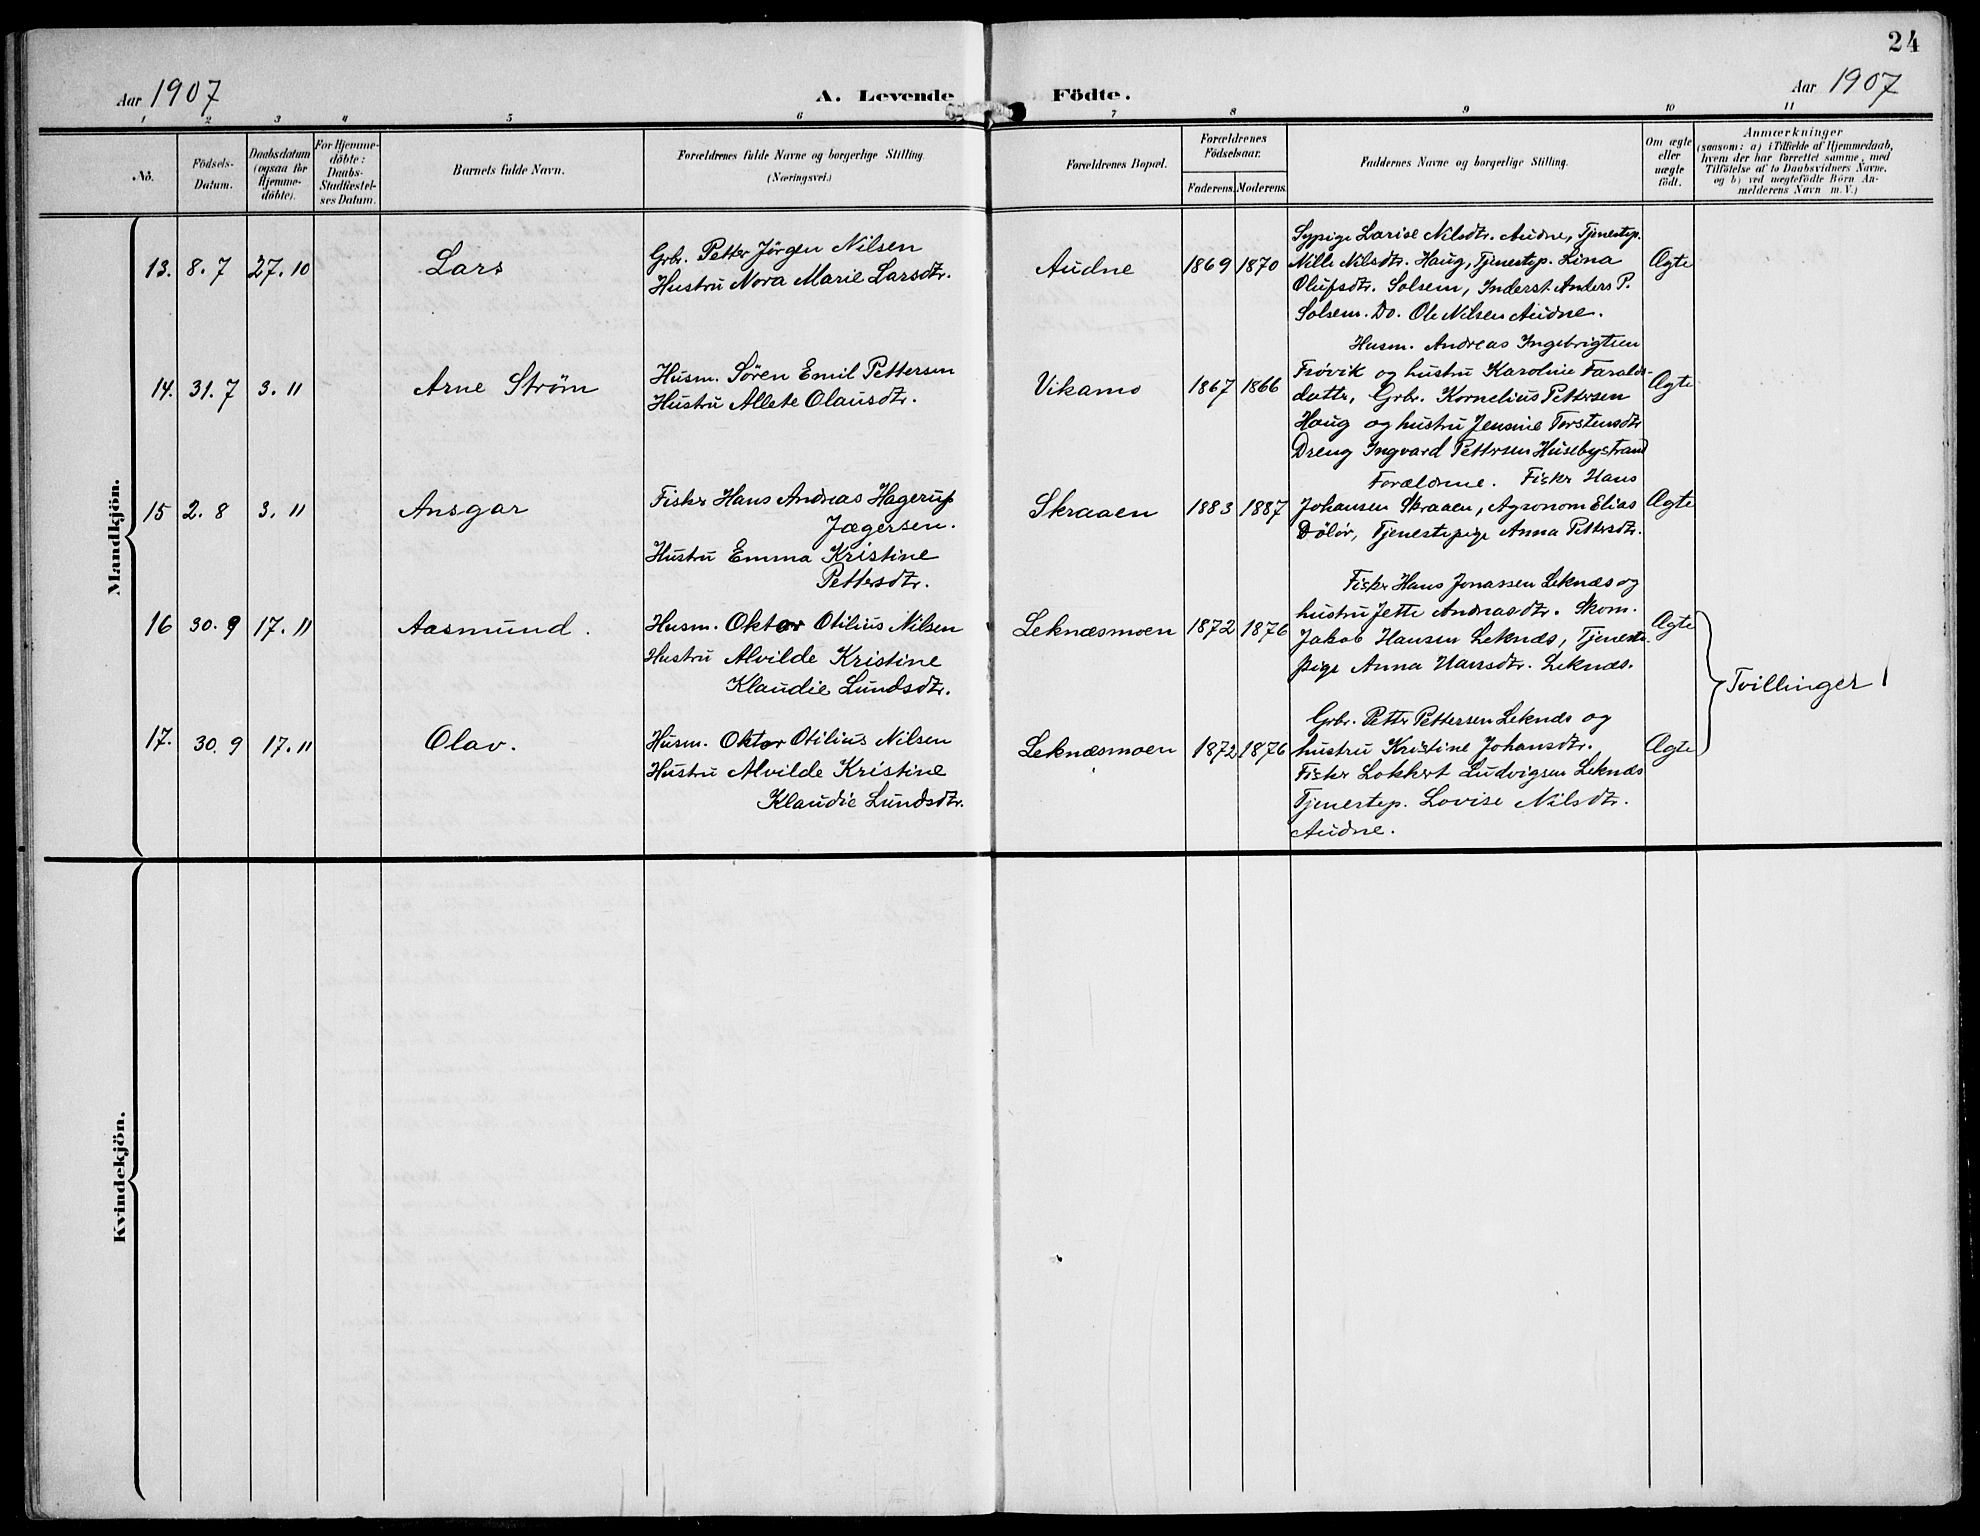 24
Aar 1907
A. Levende Födte.
Aar 1907
1 2 3 4 5 6 7 8 9 10 11
No.
Födsels-Datum.
Daabsdatum (ogsaa for Hjemme-döbte).
For Hjemme-döbte: Daabs-Stadfæstel-ses Datum.
Barnets fulde Navn.
Forældrenes fulde Navne og borgerlige Stilling.
(Næringsvei.)
Forældrenes Bopæl.
Forældrenes Födselsaar.
Faderens. Moderens.
Faddernes Navne og borgerlige Stilling.
Om ægte eller uægte födt.
Anmærkninger
(saasom: a) i Tilfælde af Hjemmedaab,
hvem der har forrettet samme, med
Tilföielse af to Daabsvidners Navne,
og b) ved uægtefödte Börn An-
melderens Navn m. V.)
Mandkjön.
13. 8. 7 27. 10 Lars
Grbr. Petter Jörgen Nilsen
Hustru Nora Marie Larsdtr.
Audne 1869 1870
Sypige Larise Nilsdtr. Audne, Tjenestep.
Nille Nilsdtr. Haug, Tjenestep. Lina
Olufsdtr. Solsem, Inderst Anders P.
Solsem. Do. Ole Nilsen Audne.
Ægte
14. 31. 7 3. 11 Arne Strøm
Husm. Sören Emil Pettersen
Hustru Allete Olausdtr.
Vikamo 1867 1866
Husm. Andreas Ingebrigtsen
Frövik og hustru Karoline Faralds-
datter, Grbr. Kornelius Pettersen
Haug og hustru Jensine Torstensdtr
Dreng Ingvard Pettersen Husebystrand
Ægte
15 2. 8 3. 11 Ansgar
Fisker Hans Andreas Hagerup
Jægersen.
Hustru Emma Kristine
Pettersdtr.
Skraaen 1883 1887
Forældrene. Fisker Hans
Johansen Skraaen, Agronom Elias
Dölör, Tjenestepige Anna Pettersdtr.
Ægte
16 30. 9 17. 11 Aasmund.
Husm. Oktav Otilius Nilsen
Hustru Alvilde Kristine
Klaudie Lundsdtr.
Leknæsmoen 1872 1876
Fisker Hans Jonassen Leknæs og
hustru Jette Andreasdtr. Skom.
Jakob Hansen Leknæs, Tjeneste-
pige Anna Hansdtr. Leknæs.
Ægte
Tvillinger
17. 30. 9 17. 11 Olav.
Husm. Oktav Otilius Nilsen
Hustru Alvilde Kristine
Klaudie Lundsdtr.
Leknæsmoen 1872 1876
Grbr. Petter Pettersen Leknæs og
hustru Kristine Johansdtr.
Fisker Lokkert Ludvigsen Leknæs
Tjenestep. Lovise Nilsdtr.
Audne.
Ægte
Kvindekjön.